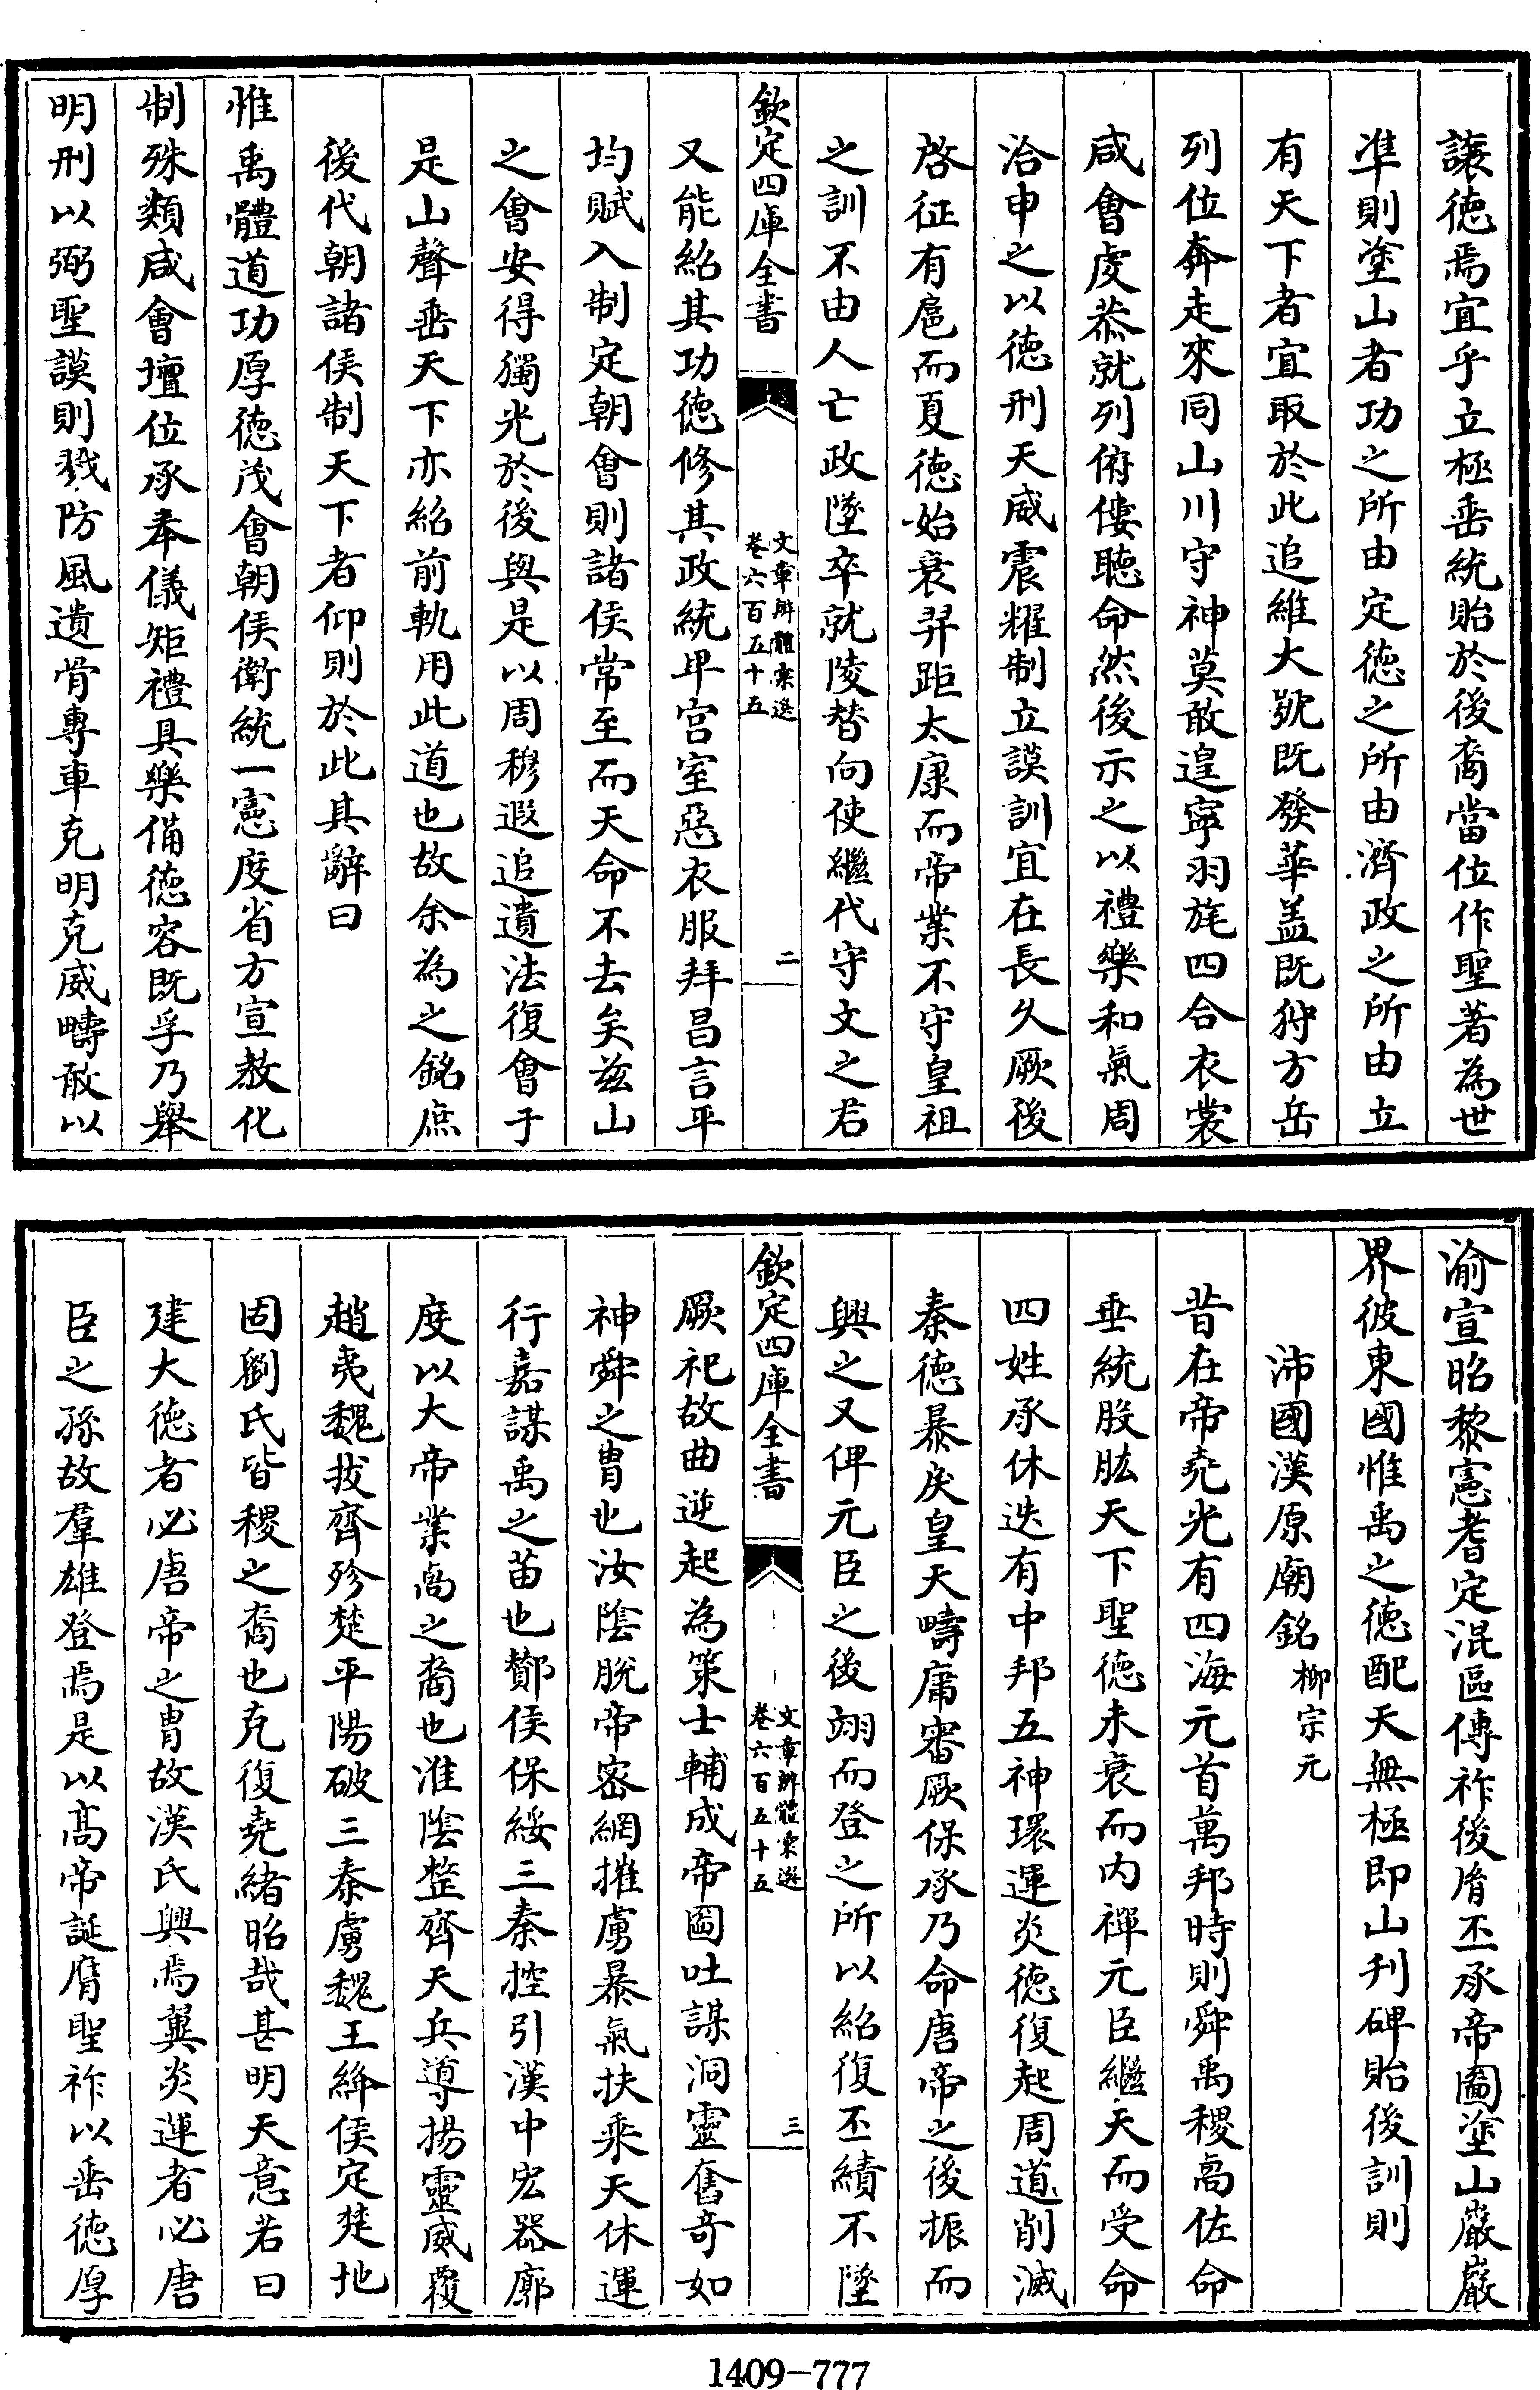 讓徳焉宜乎立極垂統貽於後裔當位作聖著為世
準則塗山者功之所由定徳之所由濟政之所由立
有天下者宜取於此追維大號既發華盖既狩方岳
列位奔走來同山川守神莫敢遑寧羽旄四合衣裳
咸會虔恭就列俯僂聽命然後示之以禮樂和氣周
洽申之以徳刑天威震耀制立謨訓宜在長久厥後
啓征有扈而夏徳始衰羿距太康而帝業不守皇祖
之訓不由人亡政墜卒就陵替向使繼代守文之君
欽定四庫全書
文章辨體彚選
卷六百五十五
二
又能紹其功徳修其政統卑宫室惡衣服拜昌言平
均賦入制定朝會則諸侯常至而天命不去矣兹山
之會安得獨光於後與是以周穆遐追遺法復會于
是山聲垂天下亦紹前軌用此道也故余為之銘庶
後代朝諸侯制天下者仰則於此其辭曰
惟禹體道功厚徳茂會朝侯衛統一憲度省方宣敎化
制殊類咸會壇位承奉儀矩禮具樂備徳容既孚乃舉
明刑以弼聖謨則戮防風遺骨專車克明克威疇敢以
渝宣昭黎憲耆定混區傳祚後胤丕承帝圖塗山巖巖
界彼東國惟禹之徳配天無極即山刋碑貽後訓則
沛國漢原廟銘 柳宗元
昔在帝堯光有四海元首萬邦時則舜禹稷卨佐命
垂統股肱天下聖徳未衰而内禪元臣繼天而受命
四姓承休迭有中邦五神環運炎徳復起周道削滅
秦徳暴戾皇天疇庸審厥保承乃命唐帝之後振而
興之又俾元臣之後翊而登之所以紹復丕績不墜
欽定四庫全書
文章辨體彚選
卷六百五十五
三
厥祀故曲逆起為策士輔成帝圖吐謀洞靈奮竒如
神舜之胄也汝陰脫帝密網摧虜暴氣扶乘天休運
行嘉謀禹之苗也酇侯保綏三秦控引漢中宏器廓
度以大帝業卨之裔也淮陰整齊天兵導揚靈威覆
趙夷魏拔齊殄楚平陽破三秦虜魏王絳侯定楚地
固劉氏皆稷之裔也克復堯緒昭哉甚明天意若曰
建大徳者必唐帝之胄故漢氏興焉翼炎運者必唐
臣之孫故羣雄登焉是以髙帝誕膺聖祚以垂徳厚
1409-777